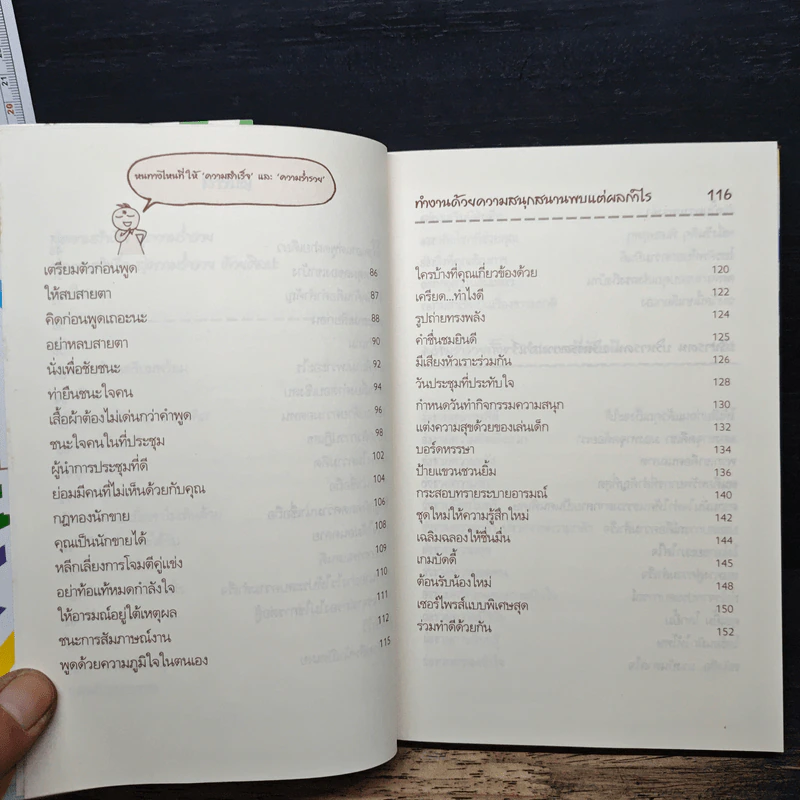 หนทางไหนที่ให้ 'ความสำเร็จ' และ 'ความร่ำรวย'
เตรียมตัวก่อนพูด 86
ให้สบสายตา 87
คิดก่อนพูดเถอะนะ 88
อย่าหลบสายตา 90
นั่งเพื่อชัยชนะ 92
ท่ายืนชนะใจคน 94
เสื้อผ้าต้องไม่เด่นกว่าคำพูด 96
ชนะใจคนในที่ประชุม 98
ผู้นำการประชุมที่ดี 102
ย่อมมีคนที่ไม่เห็นด้วยกับคุณ 104
กฎทองนักขาย 106
คุณเป็นนักขายได้ 108
หลีกเลี่ยงการโจมตีคู่แข่ง 109
อย่าท้อแท้หมดกำลังใจ 110
ให้อารมณ์อยู่ใต้เหตุผล 111
ชนะการสัมภาษณ์งาน 112
พูดด้วยความภูมิใจในตนเอง 115
ทำงานด้วยความสนุกสนานพบแต่ผลกำไร 116
ใครบ้างที่คุณเกี่ยวข้องด้วย 120
เครียด...ทำไงดี 122
รูปถ่ายทรงพลัง 124
คำชื่นชมยินดี 125
มีเสียงหัวเราะร่วมกัน 126
วันประชุมที่ประทับใจ 128
กำหนดวันทำกิจกรรมความสนุก 130
แต่งความสุขด้วยของเล่นเด็ก 132
บอร์ดหรรษา 134
ป้ายแขวนชวนยิ้ม 136
กระสอบทรายระบายอารมณ์ 140
ชุดใหม่ให้ความรู้สึกใหม่ 142
เฉลิมฉลองให้ชื่นมื่น 144
เกมบัดดี้ 145
ต้อนรับน้องใหม่ 148
เซอร์ไพรส์แบบพิเศษสุด 150
ร่วมทำดีด้วยกัน 152